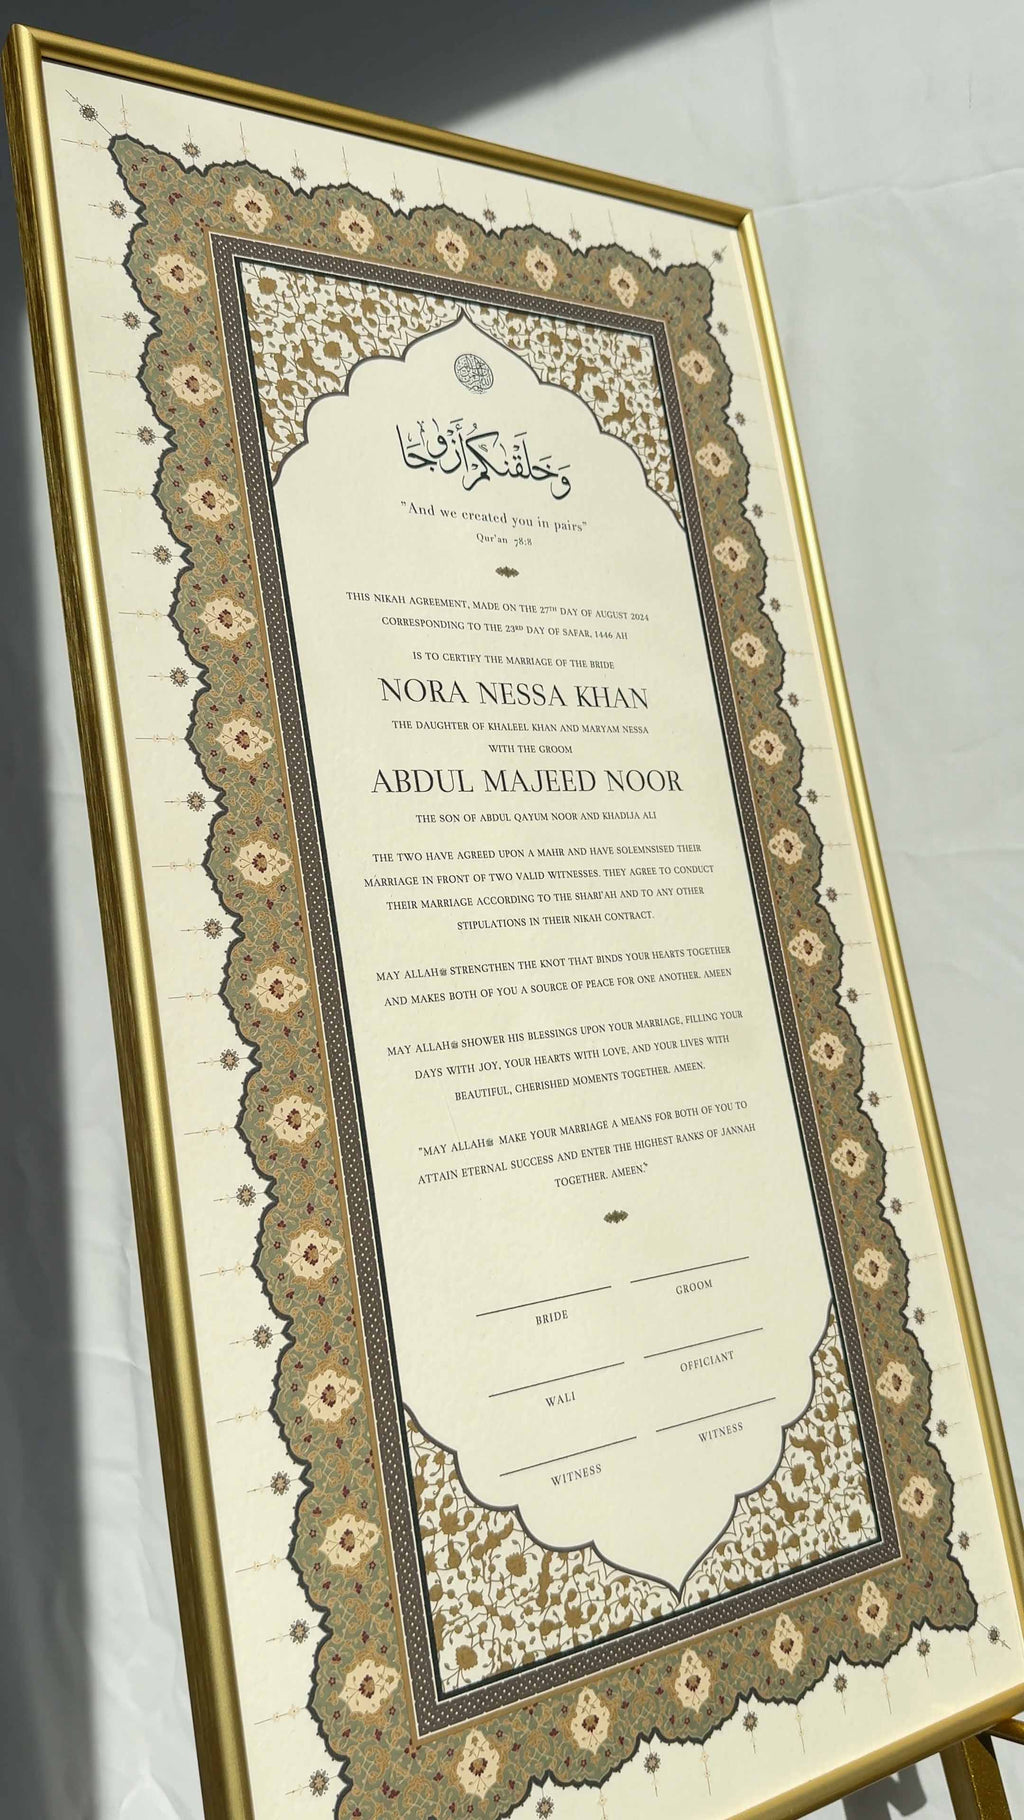 وَخَلَقْنَٰكُمْ أَزْوَٰجًا
"And we created you in pairs"
Qur'an 78:8
THIS NIKAH AGREEMENT, MADE ON THE 27TH DAY OF AUGUST 2024
CORRESPONDING TO THE 23RD DAY OF SAFAR, 1446 AH
IS TO CERTIFY THE MARRIAGE OF THE BRIDE
NORA NESSA KHAN
THE DAUGHTER OF KHALEEL KHAN AND MARYAM NESSA
WITH THE GROOM
ABDUL MAJEED NOOR
THE SON OF ABDUL QAYUM NOOR AND KHADIJA ALI
THE TWO HAVE AGREED UPON A MAHR AND HAVE SOLEMNSISED THEIR
MARRIAGE IN FRONT OF TWO VALID WITNESSES. THEY AGREE TO CONDUCT
THEIR MARRIAGE ACCORDING TO THE SHARI'AH AND TO ANY OTHER
STIPULATIONS IN THEIR NIKAH CONTRACT.
MAY ALLAH ﷻ STRENGTHEN THE KNOT THAT BINDS YOUR HEARTS TOGETHER
AND MAKES BOTH OF YOU A SOURCE OF PEACE FOR ONE ANOTHER. AMEEN
MAY ALLAH ﷻ SHOWER HIS BLESSINGS UPON YOUR MARRIAGE, FILLING YOUR
DAYS WITH JOY, YOUR HEARTS WITH LOVE, AND YOUR LIVES WITH
BEAUTIFUL, CHERISHED MOMENTS TOGETHER. AMEEN.
"MAY ALLAH ﷻ MAKE YOUR MARRIAGE A MEANS FOR BOTH OF YOU TO
ATTAIN ETERNAL SUCCESS AND ENTER THE HIGHEST RANKS OF JANNAH
TOGETHER. AMEEN."
BRIDE GROOM
WALI OFFICIANT
WITNESS WITNESS